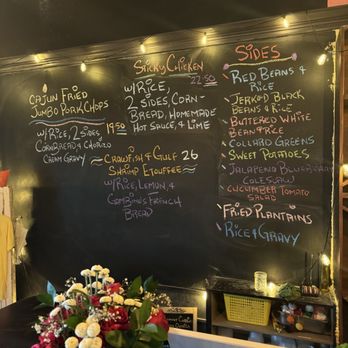 Cajun Fried
Jumbo Pork Chops
w/ Rice, 2 Sides, 19.50
Cornbread & Chorizo
Cream Gravy
Sticky Chicken
22.50
w/ Rice,
2 Sides, Corn-
Bread, Homemade
Hot Sauce, & Lime
Crawfish & Gulf 26
Shrimp Etouffee
w/ Rice, Lemon, &
Gambino's French
Bread
Sides
Red Beans &
Rice
Jerked Black
Beans & Rice
Buttered White
Bean & Rice
Collard Greens
Sweet Potatoes
Jalapeño Blueberry
Coleslaw
Cucumber Tomato
Salad
Fried Plantains
Rice & Gravy